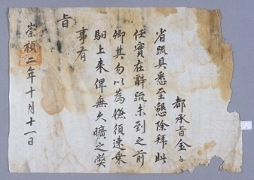 都承旨金
省疏具悉懇除拜此
任實在辭疏未到之前
卿其勿以為嫌須速乘
馹上來俾無久曠之獘
事有
旨
崇禎二年十月十一日